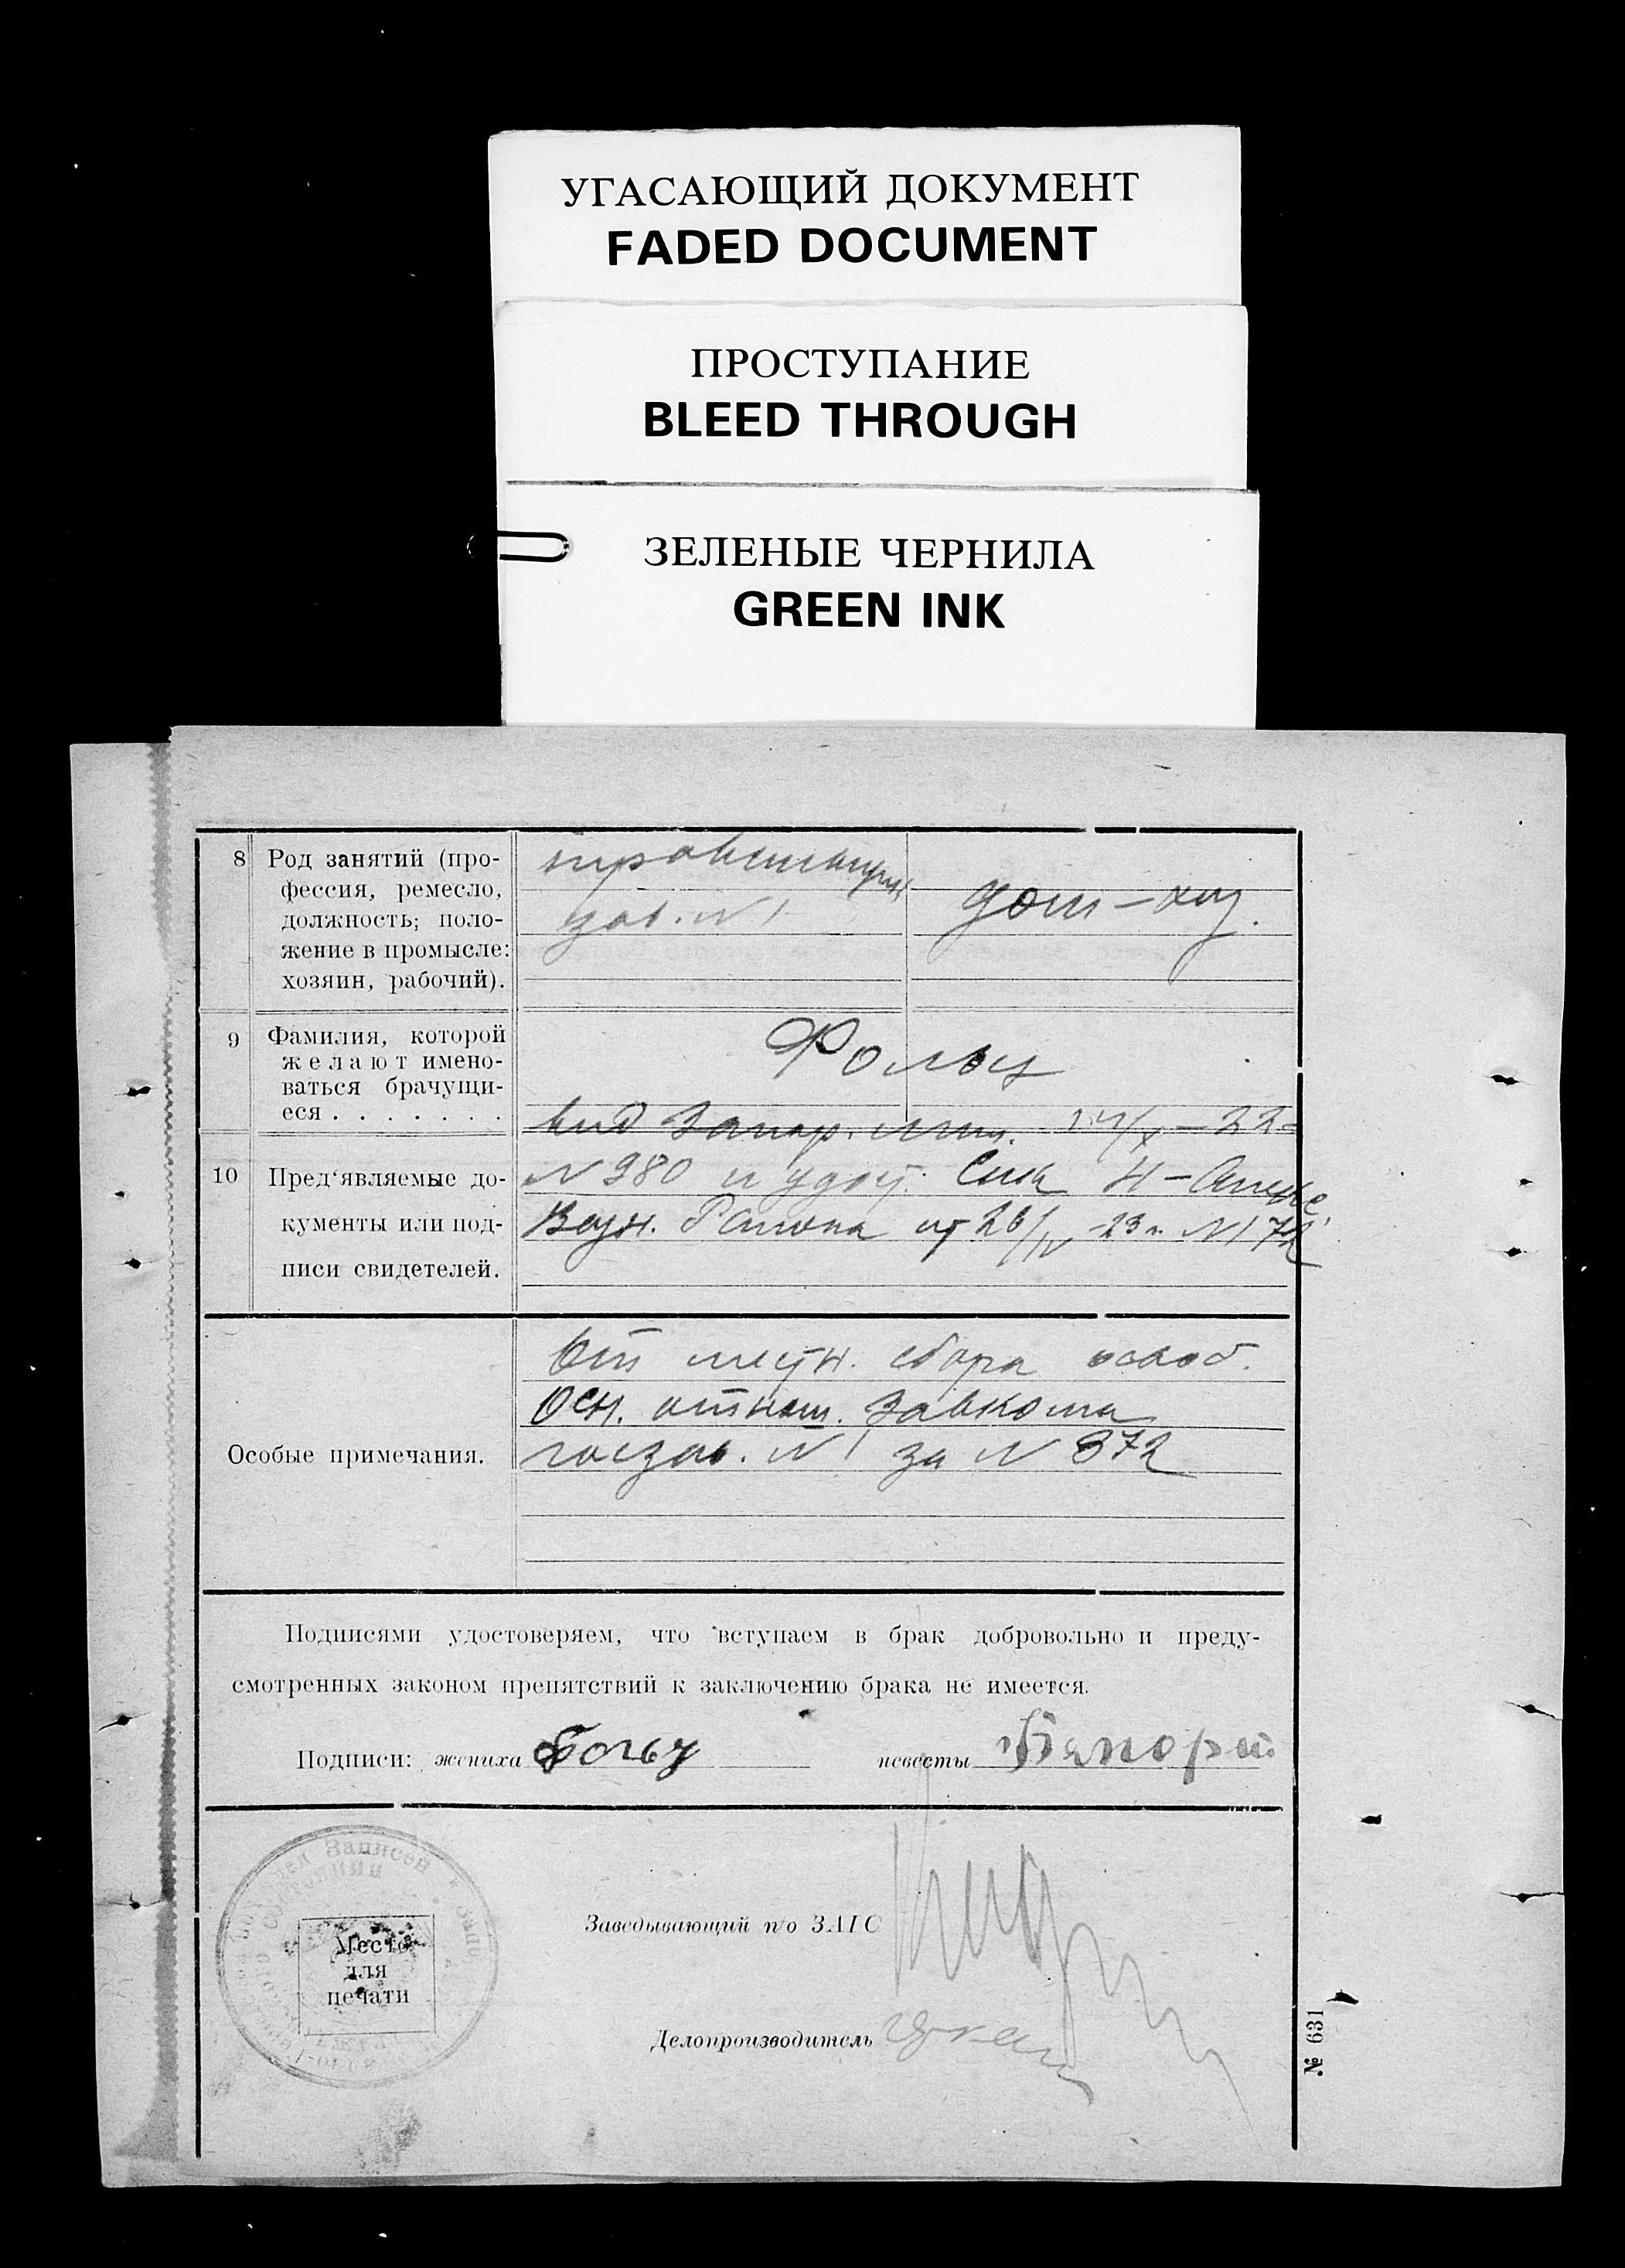 УГАСАЮЩИЙ ДОКУМЕНТ
FADED DOCUMENT
ПРОСТУПАНИЕ
BLEED THROUGH
ЗЕЛЕНЫЕ ЧЕРНИЛА
GREEN INK
8 Род занятий (про-
фессия, ремесло,
должность; поло-
жение в промысле:
хозяин, рабочий).
зав. № 1
дом-хоз.
9 Фамилия, которой
желают имено-
ваться брачущи-
еся . . . . . . .
Фольц
вид Запор. Мил. 14/X-22
10 Пред'являемые до-
кументы или под-
писи свидетелей.
№ 980 и удост.
Вознес. Района от 26/IV 23 г. № 172
Особые примечания.
От местн. сбора освоб.
Осн. отнош. Завкома
госзав. № 1 за № 872
Подписями удостоверяем, что вступаем в брак добровольно и преду-
смотренных законом препятствий к заключению брака не имеется.
Подписи: жениха Фольц невесты
Записей
Место
для
печати
Заведывающий п/о ЗАГС
Делопроизводитель
№ 631